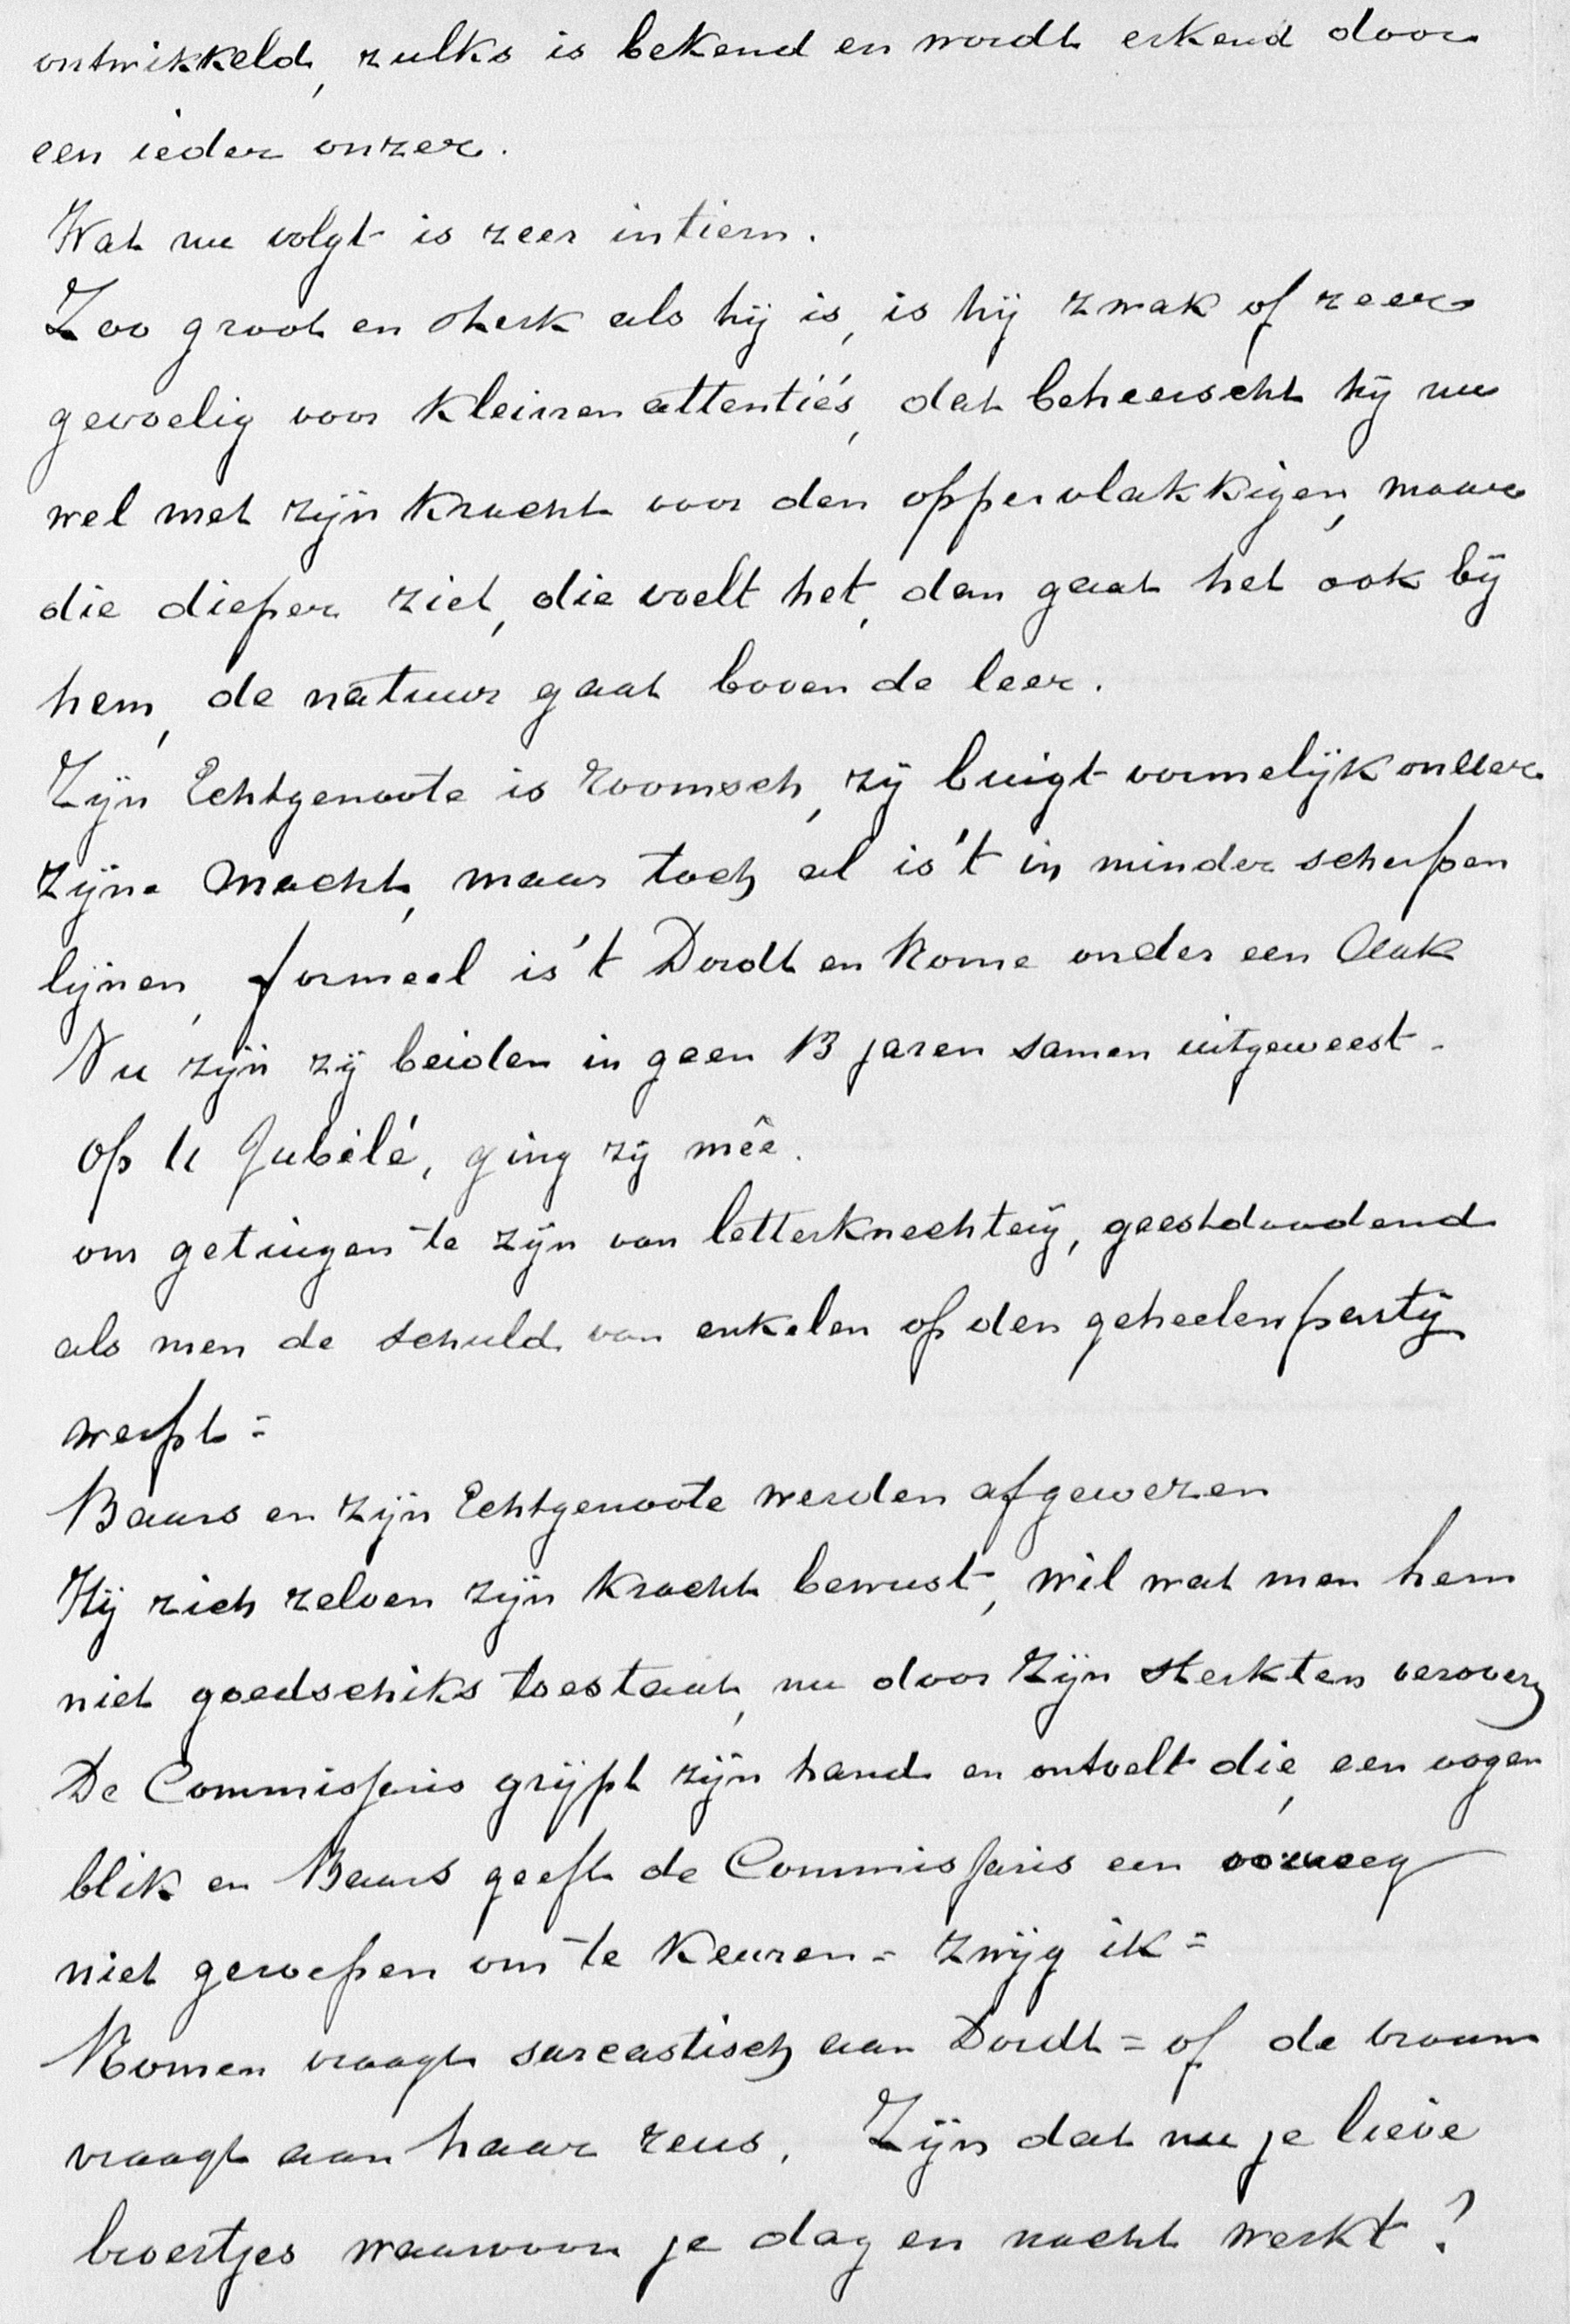 ontwikkeld, zulks is bekend en wordt erkend door
een ieder onzer.
Wat nu volgt is zeer intiem.
Zoo groot en sterk als hij is, is hij zwak of zeer
gevoelig voor kleinen attentiés, dat beheerscht hij nu
wel met zijn kracht voor den oppervlakkigen, maar
die dieper ziet, die voelt het, dan gaat het ook bij
hem, de natuur gaat boven de leer.
Zijn Echtgenoote is Roomsch, zij buigt vormelijk onder
zijne macht, maar toch al is 't in minder scherpen
lijnen, formeel is 't Dordt en Rome onder een dak
Nu zijn zij beiden in geen 13 jaren samen uitgeweest -
op 't Jubilé, ging zij mêe.
om getuigen te zijn van letterknechterij, geestdoodend
als men de schuld van enkelen op den geheelen partij
werpt =
Baars en zijn Echtgenoote werden afgewezen
Hij zich zelven zijn kracht bewust, wil wat men hem
niet goedschiks toestaat, nu door zijn sterkten verovern
De Commissaris grijpt zijn hand en ontvelt die, een oogen
blik en Baars geeft de Commissaris een oorveeg
niet geroepen om te keuren = zwijg ik =
Romen vraagt sarcastisch aan Dordt = of de vrouw
vraagt aan haar reus. Zijn dat nu je lieve
broertjes waarvoor je dag en nacht werkt?